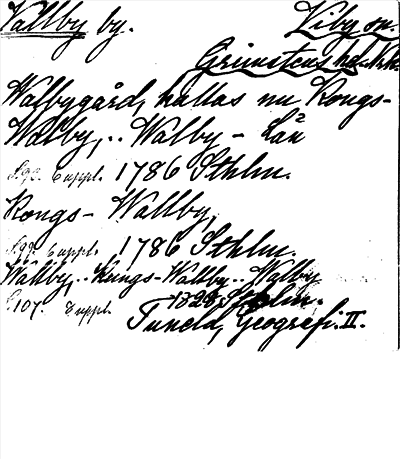 Vallby by. Viby sn.
Grimstens hd. Nrk.
Walbygård, kallas nu Kongs-
Walby, .. Walby - Lån
S. 93. 6 uppl. 1786 Sthlm.
Kongs- Wallby,
S. 99. 6 uppl. 1786 Sthlm.
Wallby, .. Kungs-Wallby .. Walby
S. 107. 8 uppl. Sthlm.
Tuneld, Geografi. II.